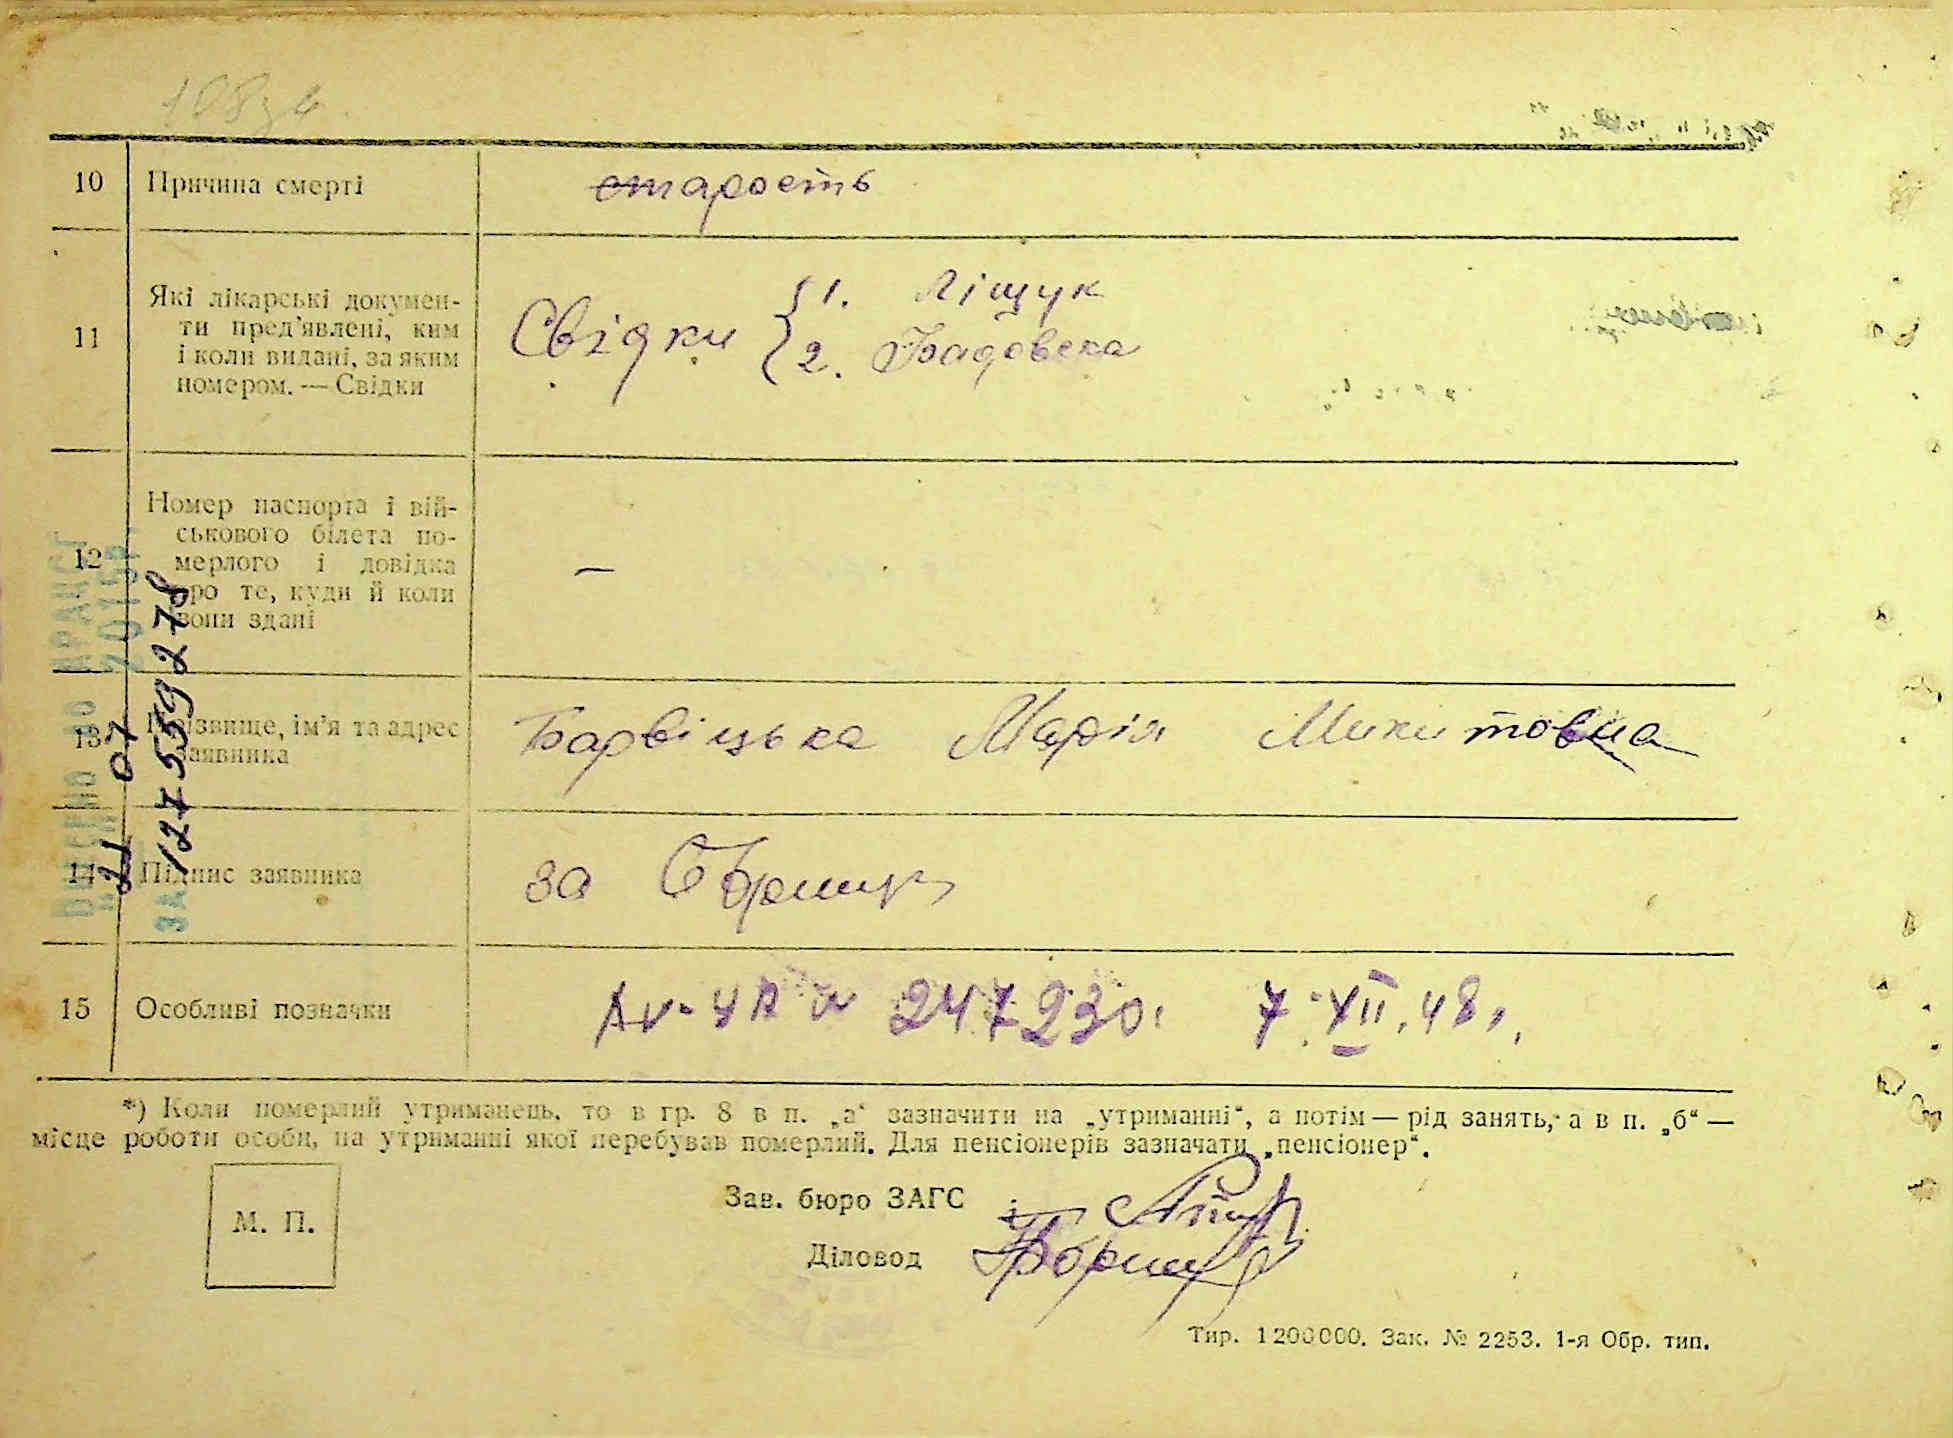 10 Причина смерті старость
11 Які лікарські докумен-
ти пред'явлені, ким
і коли видані, за яким
номером. — Свідки
Свідки { 1. Ліщук
2. Бадовска
12 Номер паспорта і вій-
ськового білета по-
мерлого і довідка
про те, куди й коли
вони здані
—
13 Прізвище, ім'я та адрес
заявника
Барвіцька Марія Микитовна
14 Підпис заявника за
15 Особливі позначки 247230. 7 XII. 48
21 07
ЗА 127559278
*) Коли померлий утриманець, то в гр. 8 в п. „а“ зазначити на „утриманні“, а потім — рід занять, а в п. „б“ —
місце роботи особи, на утриманні якої перебував померлий. Для пенсіонерів зазначати „пенсіонер“.
М. П.
Зав. бюро ЗАГС
Діловод
Тир. 1200000. Зак. № 2253. 1-я Обр. тип.